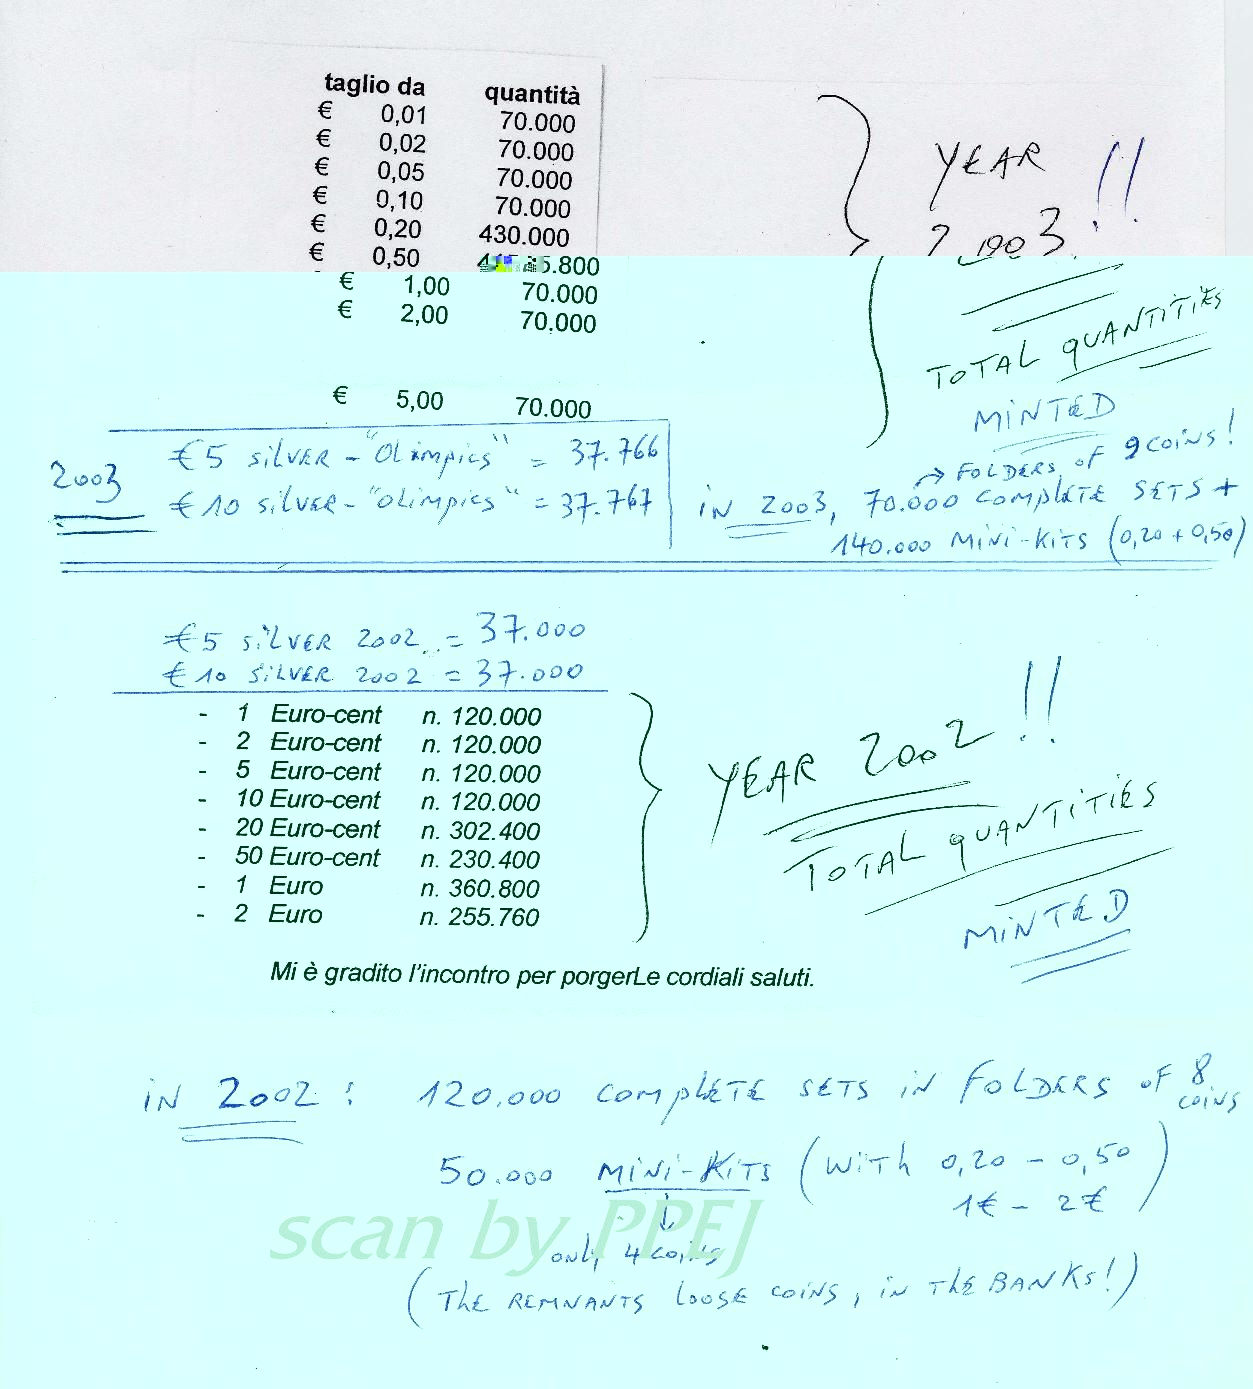 taglio da quantità
€ 0,01 70.000
€ 0,02 70.000
€ 0,05 70.000
€ 0,10 70.000
€ 0,20 430.000
€ 0,50 5.800
€ 1,00 70.000
€ 2,00 70.000
€ 5,00 70.000
YEAR !!
2003
TOTAL QUANTITIES
MINTED
2003
€ 5 SILVER - "OLIMPICS" = 37.766
€ 10 SILVER - "OLIMPICS" = 37.767
→ FOLDERS OF 9 COINS!
IN 2003, 70.000 COMPLETE SETS +
140.000 MINI-KITS (0,20 + 0,50)
€ 5 SILVER 2002 = 37.000
€ 10 SILVER 2002 = 37.000
- 1 Euro-cent n. 120.000
- 2 Euro-cent n. 120.000
- 5 Euro-cent n. 120.000
- 10 Euro-cent n. 120.000
- 20 Euro-cent n. 302.400
- 50 Euro-cent n. 230.400
- 1 Euro n. 360.800
- 2 Euro n. 255.760
YEAR 2002 !!
TOTAL QUANTITIES
MINTED
Mi è gradito l'incontro per porgerLe cordiali saluti.
IN 2002 : 120.000 COMPLETE SETS IN FOLDERS OF 8 COINS
50.000 MINI-KITS (WITH 0,20 - 0,50
1€ - 2€)
scan by PPEJ
only 4 coins
(THE REMNANTS LOOSE COINS, IN THE BANKS!)